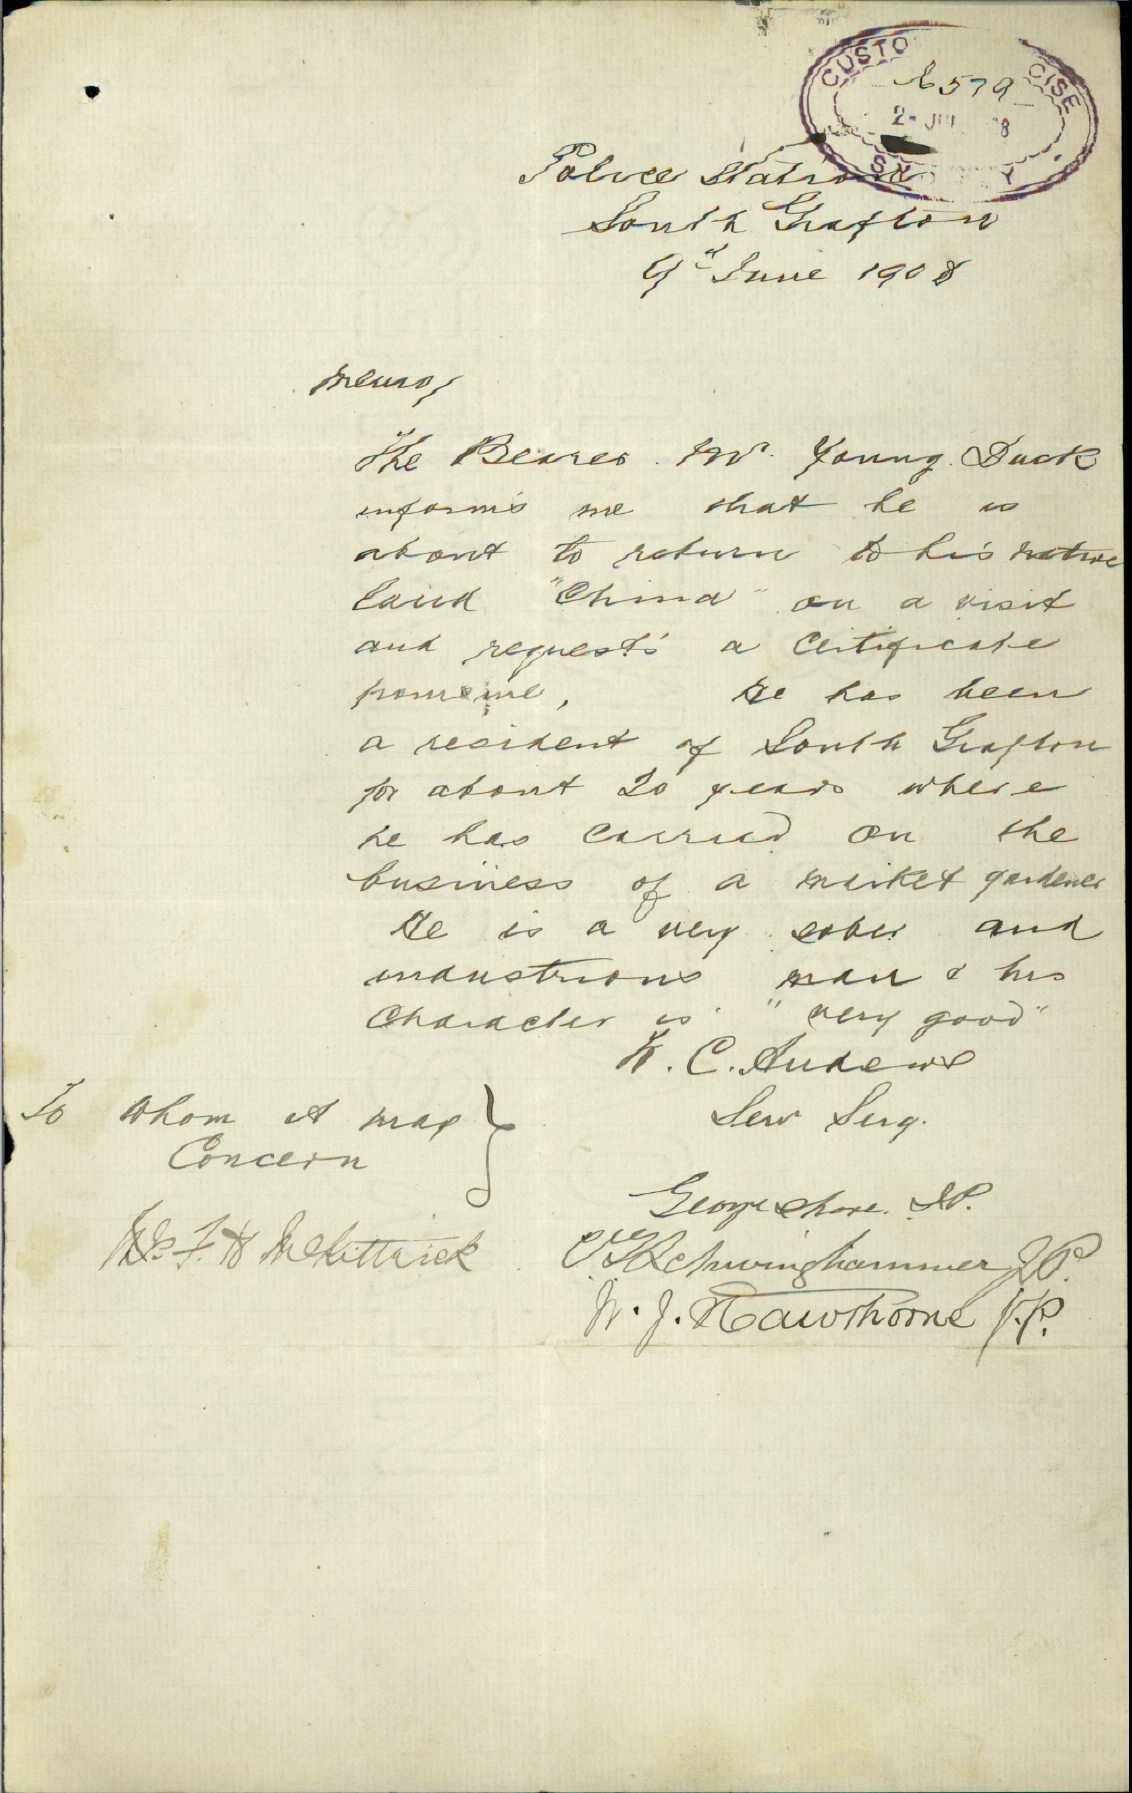 CUSTO CISE
No 579
2 - JUL 8
SY Y
Police Station
South Grafton
9th June 1908
Memo,
The Bearer Mr. Young Duck
informs me that he is
about to return to his native
land "China" on a visit
and requests a Certificate
from me, He has been
a resident of South Grafton
for about 20 years where
he has carried on the
business of a market gardener
He is a very sober and
industrious man & his
Character is "very good"
W. C. Andrews
Sen Serg.
To Whom it may
Concern
George Shore. J.P.
F H McKittrick
Schwinghammer J.P.
W. J. Hawthorne J.P.